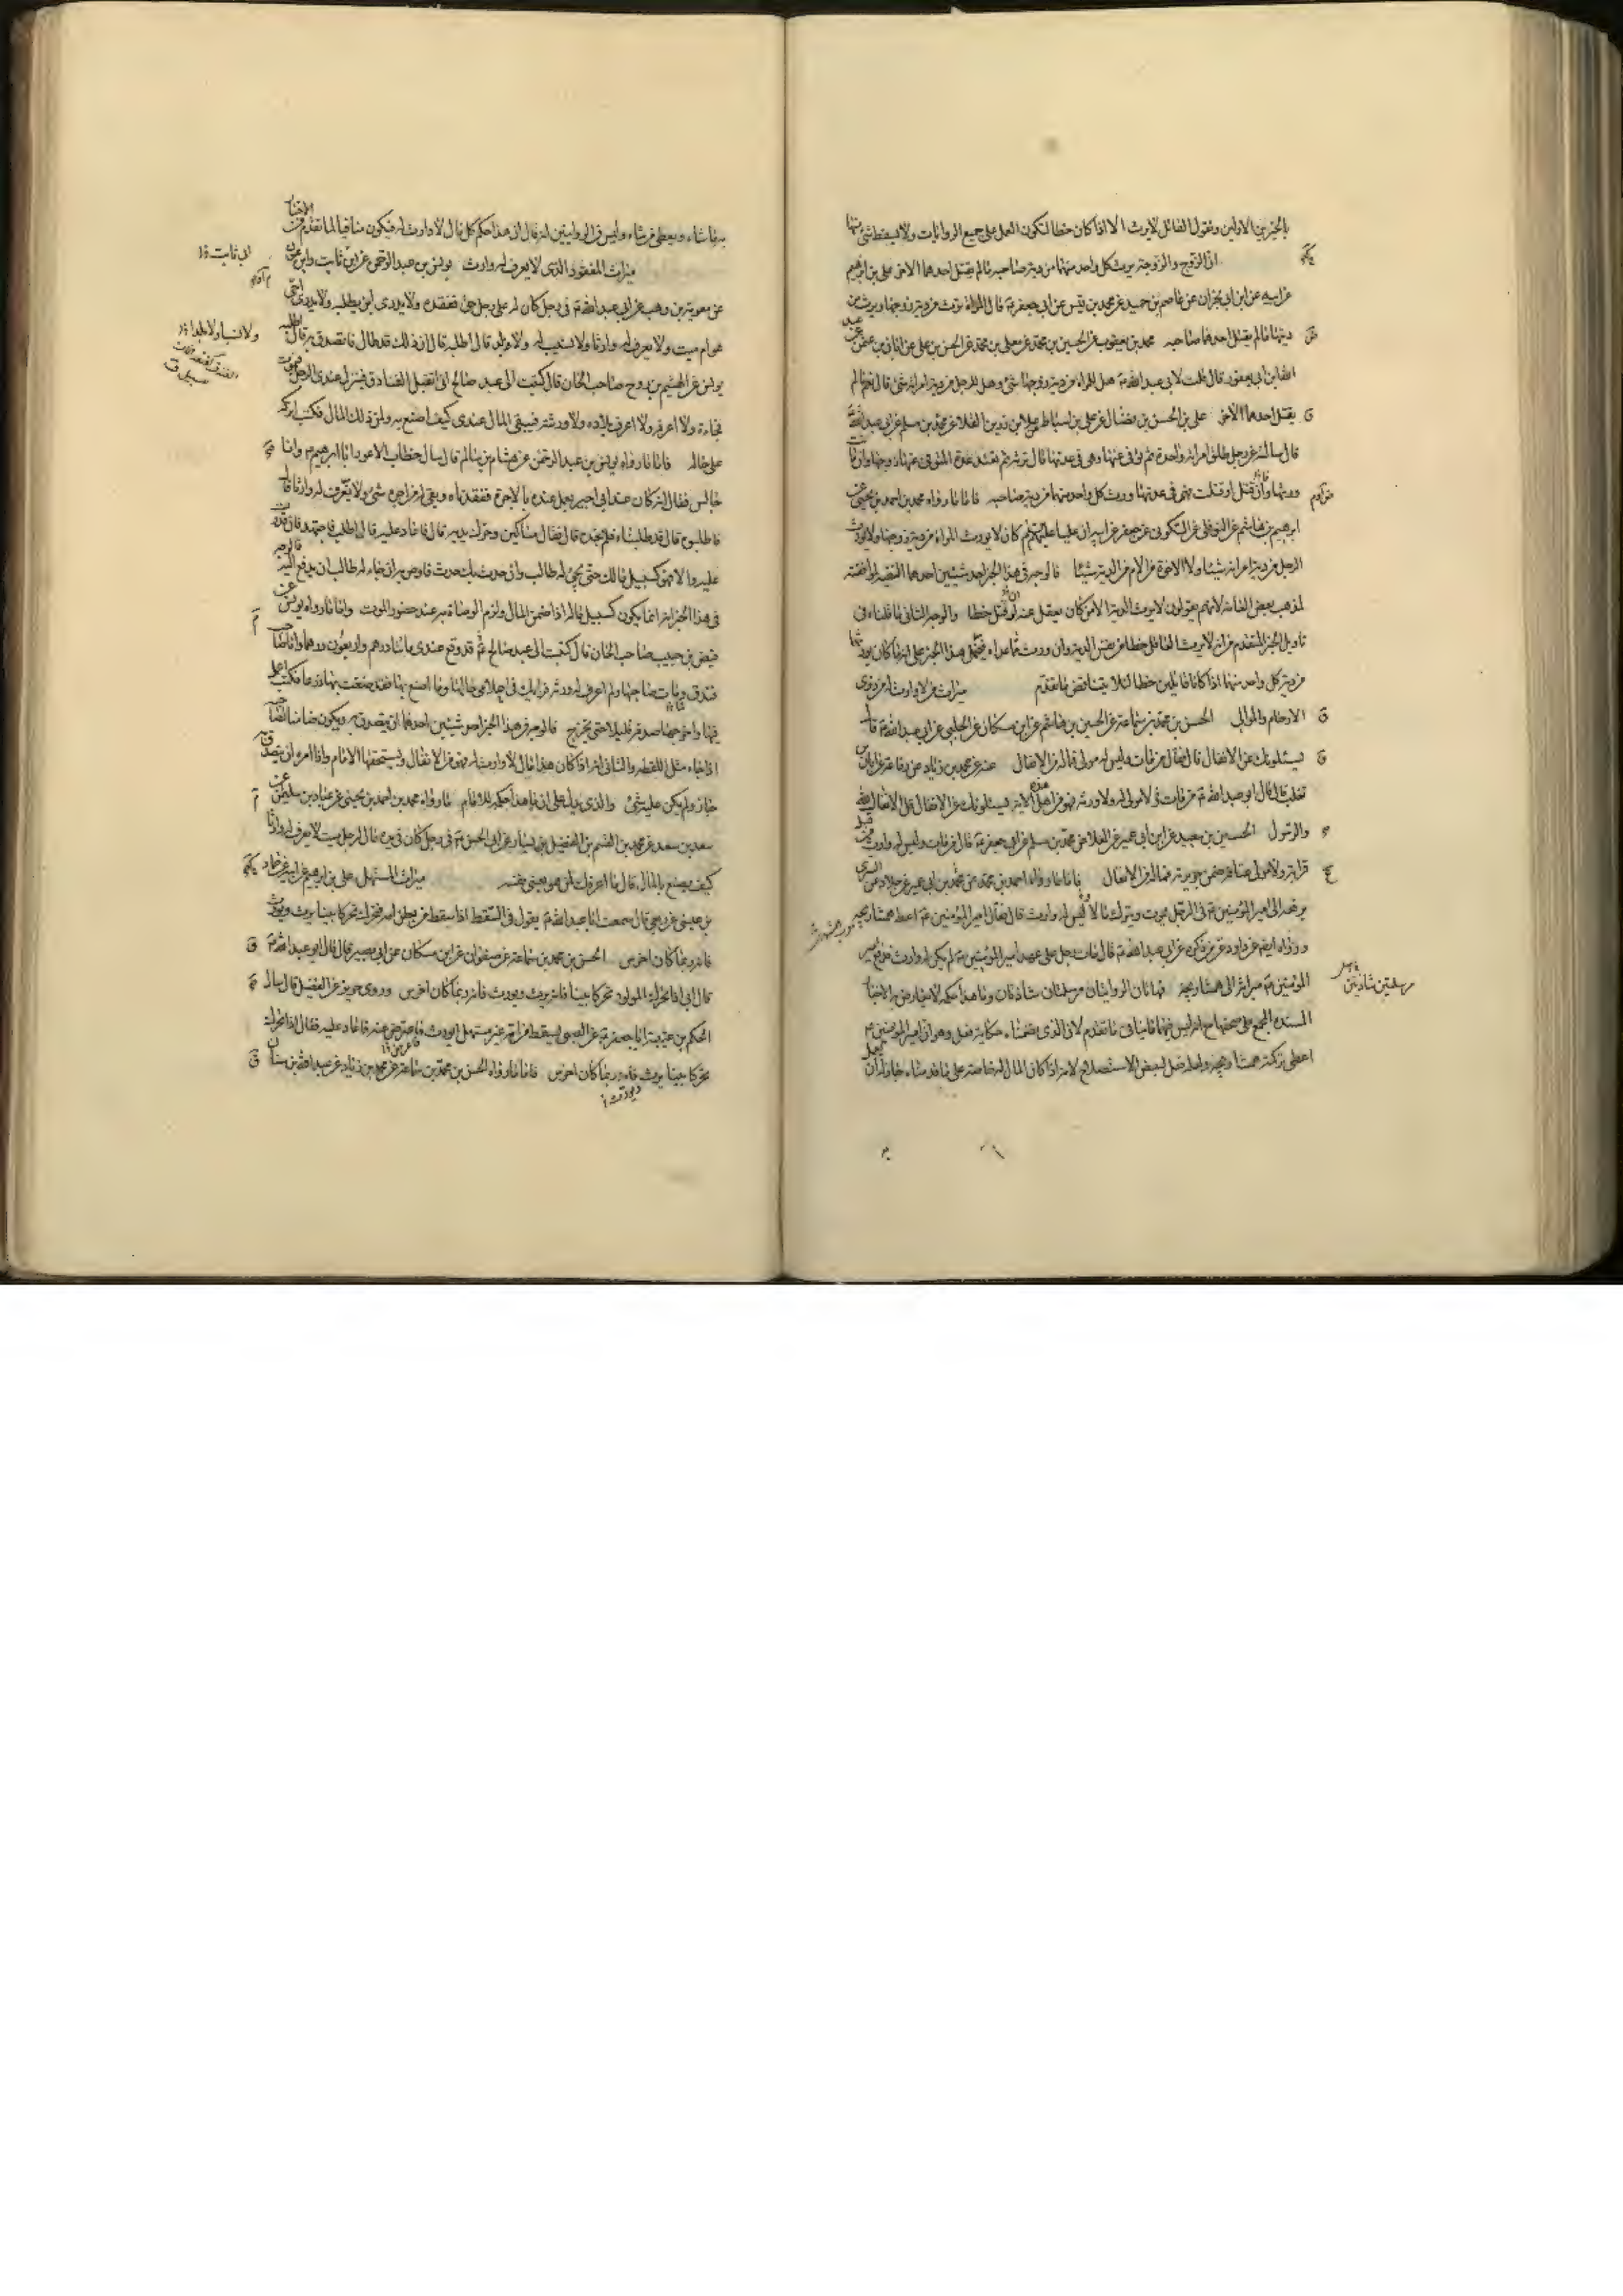 بالخبرين الاولين ونقول القاتل لا يرث الا اذا كان خطا لتكون العمل على جميع الروايات ولا يسقط شئ منها
ان الزوج والزوجة يرث كل واحد منهما من دية صاحبه ما لم يقتل احدهما الاخر علي بن ابرهيم
عن ابيه عن ابن ابي نجران عن عاصم بن حميد عن محمد بن قيس عن ابي جعفر قال المراة ترث من دية زوجها ويرث من
ديتها ما لم يقتل احدهما صاحبه محمد بن يعقوب عن الحسين بن محمد عن معلى بن محمد عن الحسن بن علي عن ابان بن عثمن عن عبد
الله ابن ابي يعفور قال قلت لابي عبد الله هل للمراة من دية زوجها شئ وهل للرجل من دية امراته شئ قال نعم ما لم
يقتل احدهما الاخر علي بن الحسن بن فضال عن علي بن اسباط عن علا بن رزين القلا عن محمد بن مسلم عن ابي عبد الله
قال سالته عن رجل طلق امراته واحدة ثم توفى عنها وهي في عدتها قال ترثه ثم تعتد عدة المتوفى عنها زوجها وان ماتت
ورثها وان قتل او قتلت وهي في عدتها ورث كل واحد منهما من دية صاحبه فاما ما رواه محمد بن احمد بن يحيى عن
ابرهيم بن هاشم عن النوفلي عن السكوني عن جعفر عن ابيه ان عليا كان لا يورث المراة من دية زوجها ولا يورث
الرجل من دية امراته شيئا ولا الاخوة من الام من الدية شيئا فالوجه في هذا الخبر احد شيئين احدهما التقية لموافقته
لمذهب بعض العامة لانهم يقولون لا يورث الدية الا من كان يعقل عنه لو قتل خطا والوجه الثاني ما قلناه في
تاويل الخبر المتقدم من انه لا يرث القاتل خطا من نفس الدية وان ورث مما عداه فيحمل هذا الخبر على انه ما كان يورثهما
من دية كل واحد منهما اذا كانا قاتلين خطا لئلا يتناقض ما تقدم ميراث من لا وارث له من ذوي
الارحام والموالي الحسن بن محمد بن سماعة عن الحسين بن هاشم عن ابن مسكان عن الحلبي عن ابي عبد الله قال
يسئلونك عن الانفال قال فقال من مات وليس له مولى فماله من الانفال عنه عن محمد بن زياد عن رفاعة عن ابان بن
تغلب قال قال ابو عبد الله من مات لا مولى له ولا ورثة فهو من اهل هذه الاية يسئلونك عن الانفال قل الانفال لله
والرسول الحسين بن سعيد عن ابن ابي عمير عن العلا عن محمد بن مسلم عن ابي جعفر قال من مات وليس له وارث من قبل
قرابته ولا مولى عتاقه ضمن جريرته فماله من الانفال فاما ما رواه احمد بن محمد عن محمد بن ابي عمير عن خلاد عن السري
يرفعه الى امير المؤمنين في الرجل يموت ويترك مالا وليس له وارث قال فقال امير المؤمنين اعط همشاريجه
وروى ايضا عن داود عمن ذكره عن ابي عبد الله قال مات رجل على عهد امير المؤمنين لم يكن له وارث فدفع امير
المؤمنين ميراثه الى همشاريجه فهاتان الروايتان مرسلتان شاذتان وما هذا حكمه لا يعارض به الاخبار
المسندة المجمع على صحتها مع انه ليس فيهما ما ينافي ما تقدم لان الذي تضمنتاه حكاية فعل وهو ان امير المؤمنين
اعطى تركته همشاريجه ولعله فعل لبعض الاستصلاح لانه اذا كان المال له خاصة على ما قدمناه جاز له ان يعمل
مرسلتين شاذتين
به ما شاء ويعطي من شاء وليس في الروايتين انه قال ان هذا حكم كل مال لا وارث له فيكون منافيا لما تقدم من الاخبار
ميراث المفقود الذي لا يعرف له وارث يونس بن عبد الرحمن عن ابن ثابت وابن عون
عن معوية بن وهب عن ابي عبد الله في رجل كان له على رجل حق ففقده ولا يدري اين يطلبه ولا يدري احي
هو ام ميت ولا يعرف له وارثا ولا نسيب له ولا ولد قال اطلبه قال ان ذلك قد طال فاتصدق به قال اطلبه
يونس عن الهيثم بن روح صاحب الخان قال كتبت الى عبد صالح اني اتقبل الفنادق فينزل عندي الرجل فيموت
فجاءة ولا اعرفه ولا اعرف بلاده ولا ورثته فيبقى المال عندي كيف اصنع به ولمن ذلك المال فكتب اتركه
على حاله فاما ما رواه يونس بن عبد الرحمن عن هشام بن سالم قال سال خطاب الاعور ابا ابرهيم وانا
جالس فقال انه كان عند ابي اجير يعمل عنده بالاجرة ففقدناه وبقي له من اجره شئ ولا يعرف له وارثا قال
فاطلبوه قال قد طلبناه فلم نجده قال فقال مساكين وحرك يديه قال فاعاد عليه قال اطلب فاجتهد فان قدرت
عليه والا فهو كسبيل مالك حتى يجئ له طالب وان حدث بك حدث فاوص به ان جاء له طالب ان يدفع اليه فالوجه
في هذا الخبر انه انما يكون كسبيل ماله اذا ضمن المال ولزم الوصاة به عند حضور الموت واما ما رواه يونس عن
فيض بن حبيب صاحب الخان قال كتبت الى عبد صالح قد وقع عندي مائتا درهم واربعون درهما وانا صاحب
فندق ومات صاحبها ولم اعرف له ورثة فرايك في اعلامي حالها وما اصنع بها فقد ضقت بها ذرعا فكتب اعمل
فيها واخرجها صدقة قليلا قليلا حتى تخرج فالوجه في هذا الخبر احد شيئين احدهما ان يتصدق به ويكون ضامنا لصاحبها
اذا جاء مثل اللقطة والثاني انه اذا كان هذا مال لا وارث له فهو من الانفال ويستحقها الامام واذا امره ان يتصدق به
جاز ولم يكن عليه شئ والذي يدل على ان ما هذا حكمه للامام ما رواه محمد بن احمد بن يحيى عن عباد بن سليمن عن
سعد بن سعد عن محمد بن القسم بن الفضيل بن يسار عن ابي الحسن في رجل كان في يده مال لرجل ميت لا يعرف له وارثا
كيف يصنع بالمال قال ما اعرفك لمن هو يعني نفسه ميراث المستهل علي بن ابرهيم عن ابيه عن حماد
بن عيسى عن ربعي قال سمعت ابا عبد الله يقول في السقط اذا سقط من بطن امه فتحرك تحركا بينا يرث ويورث
فانه ربما كان اخرس الحسن بن محمد بن سماعة عن صفوان عن ابن مسكان عن ابي بصير قال قال ابو عبد الله
قال ابي اذا تحرك المولود تحركا بينا فانه يرث ويورث فانه ربما كان اخرس وروى حريز عن الفضيل قال سال
الحكم بن عتيبة ابا جعفر عن الصبي يسقط من امه غير مستهل ايورث فاعرض عنه فاعاد عليه فقال اذا تحرك
تحركا بينا يرث فانه ربما كان اخرس فاما ما رواه الحسن بن محمد بن سماعة عن محمد بن زياد عن عبد الله بن سنان